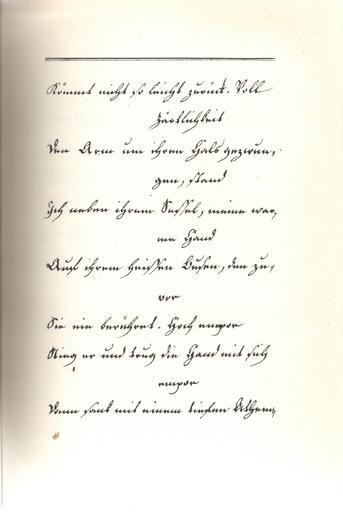 Kömmt nicht so leicht zurück. Voll
Zärtlichkeit
Den Arm um ihren Hals gezwun-
gen, stand
Ich neben ihrem Sessel, meine war-
me Hand
Auf ihrem heissen Busen, den zu-
vor
Sie nie berühret. Hoch empor
Stieg er und trug die Hand mit sich
empor
Dann sank mit einem tiefen Athem-